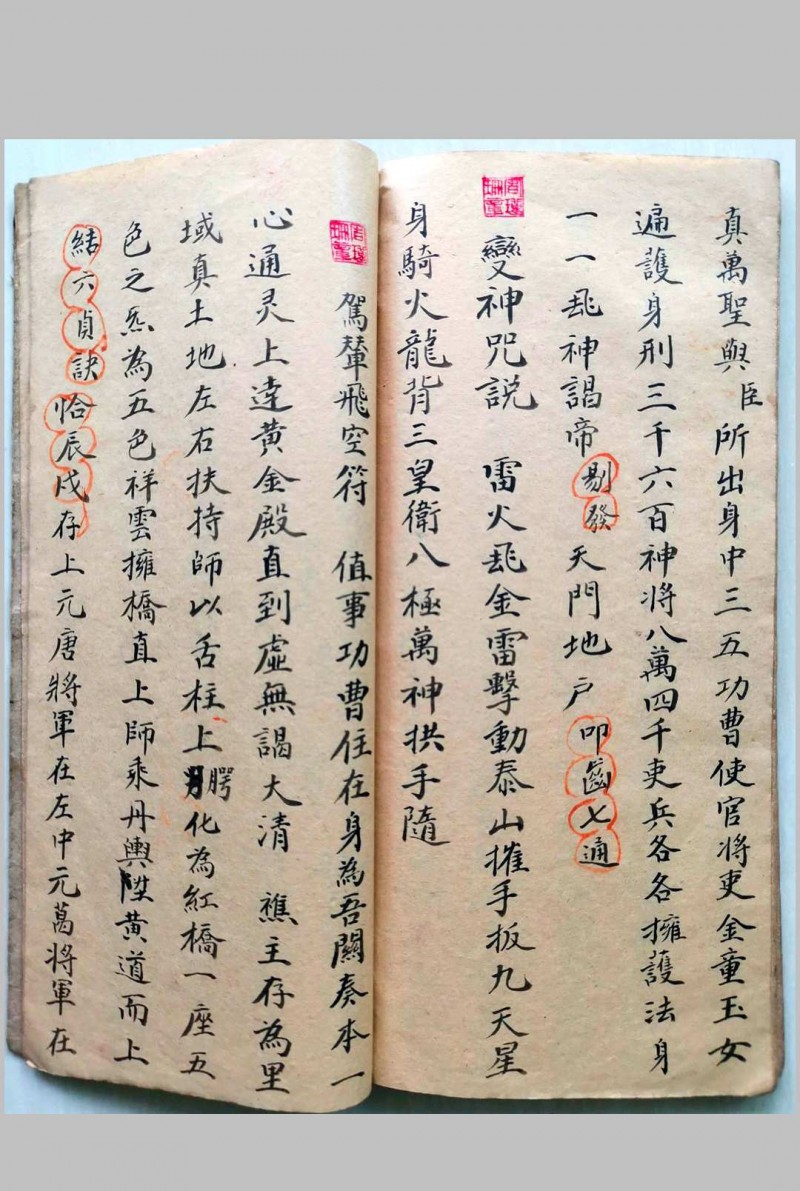 真萬聖與臣所出身中三五功曹使官將吏金童玉女
遍護身刑三千六百神将八萬四千吏兵各各擁護法身
一一飛神謁帝剔發天門地户叩齒七通
變神咒説 雷火飛金雷擊動泰山摧手扳九天星
身騎火龍背三皇衛八極萬神拱手隨
駕輦飛空符 值事功曹住在身為吾關奏本一
心通灵上達黃金殿直到虛無謁大清 主存為里
域真土地左右扶持師以舌柱上腭化為紅橋一座五
色之炁為五色祥雲擁橋直上師乘丹輿陞黃道而上
結六貞訣恰辰戌存上元唐將軍在左中元葛將軍在